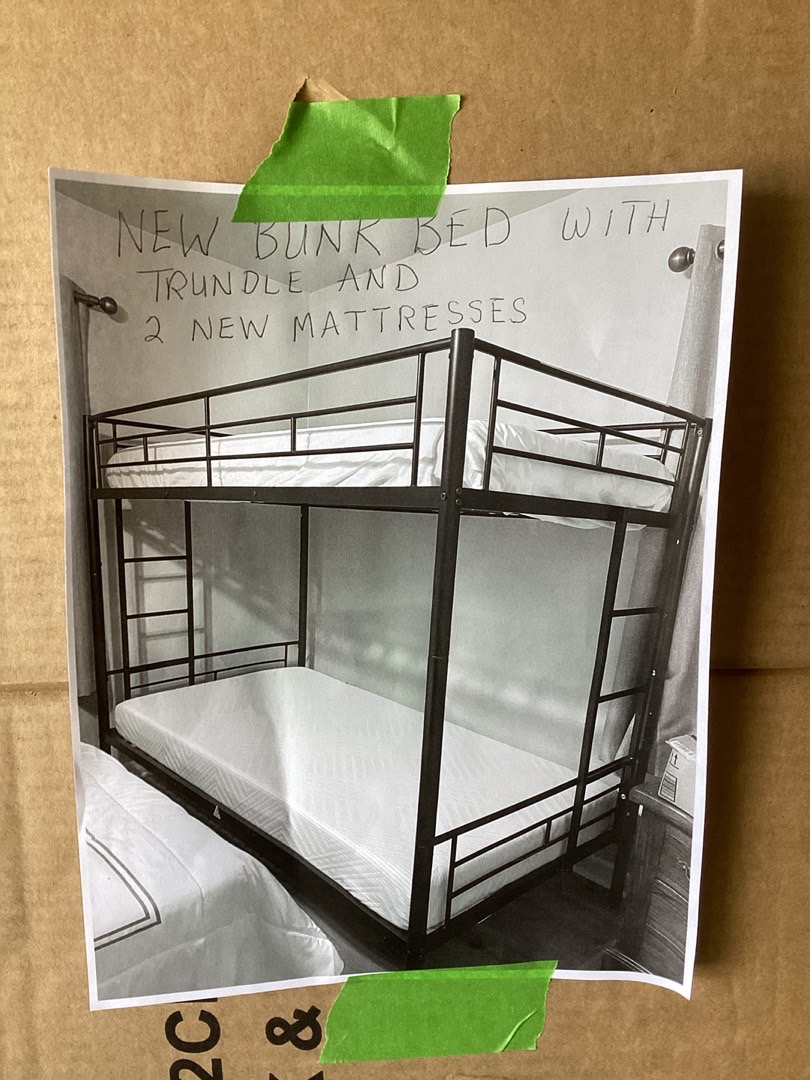 NEW BUNK BED WITH
TRUNDLE AND
2 NEW MATTRESSES
&